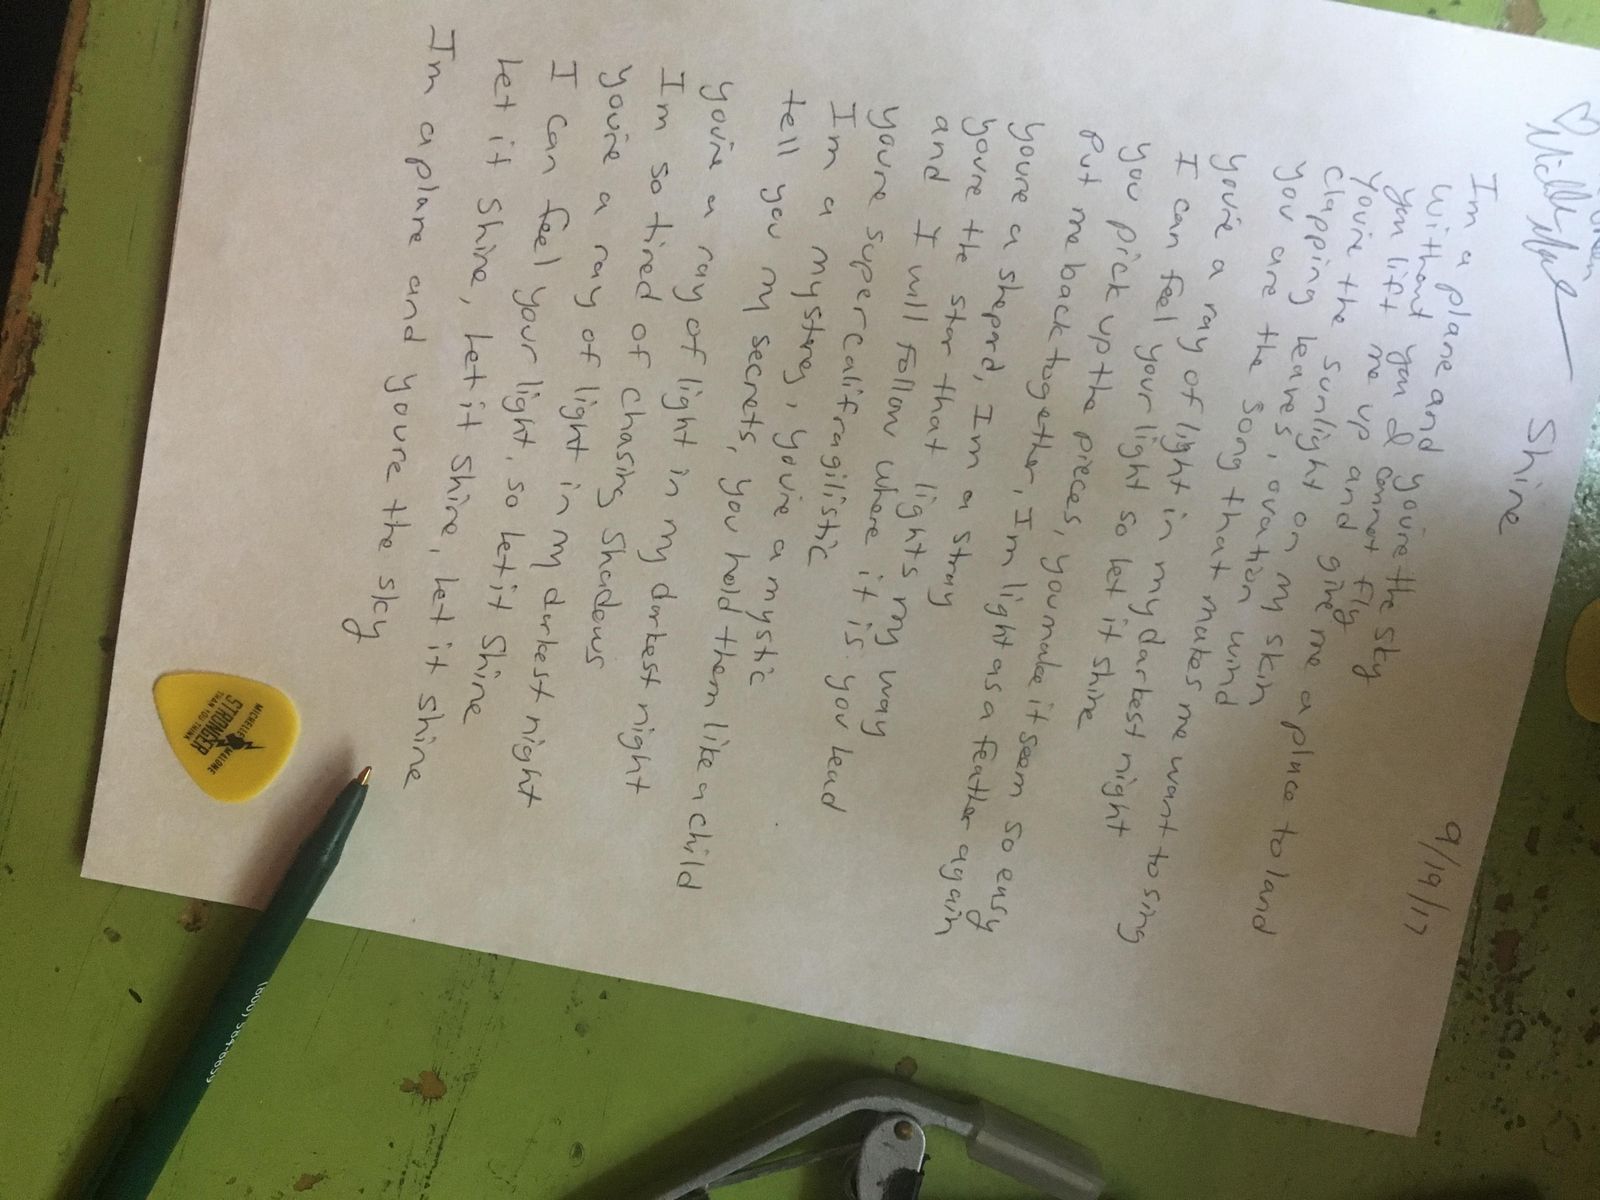 Shine
9/19/17
I'm a plane and you're the sky
without you I cannot fly
you lift me up and give me a place to land
you're the sunlight on my skin
clapping leaves, ovation wind
you are the song that makes me want to sing
you're a ray of light in my darkest night
I can feel your light so let it shine
you pick up the pieces, you make it seem so easy
put me back together, I'm light as a feather again
you're a shepard, I'm a stray
you're the star that lights my way
and I will follow where it is you lead
you're supercalifragilistic
I'm a mystery, you're a mystic
tell you my secrets, you hold them like a child
you're a ray of light in my darkest night
I'm so tired of chasing shadows
you're a ray of light in my darkest night
I can feel your light, so let it shine
Let it shine, Let it shine, Let it shine
I'm a plane and you're the sky
MICHELLE MALONE
STRONGER
THAN YOU THINK